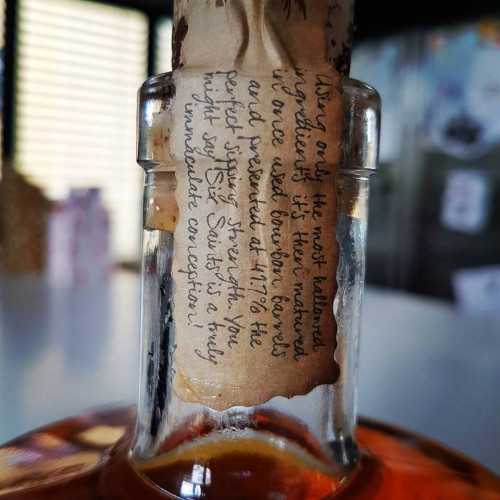 Using only the most hallowed
ingredients it's then matured
in once used bourbon barrels
and presented at 41.7% the
perfect sipping strength. You
might say 'Six Saints' is a truly
immaculate conception!